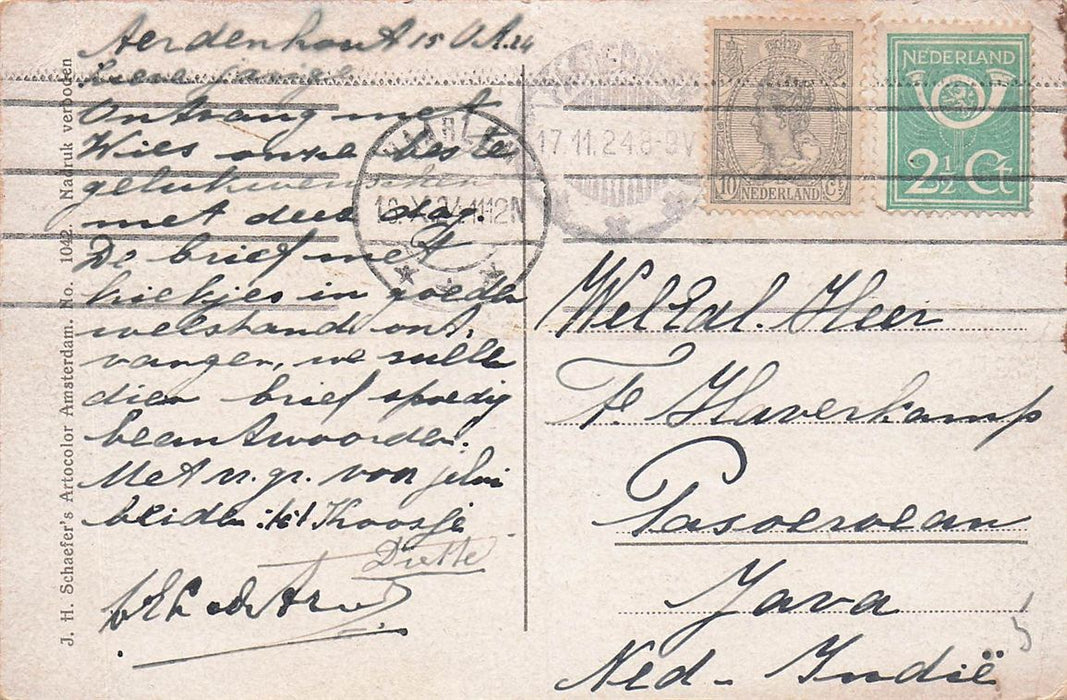 Aerdenhout 15 Oct. 24
Lieve
Ontvang met
Wies onze beste
gelukwenschen
met deze dag.
De brief met
kiekjes in goeden
welstand ont-
vangen, we zullen
dien brief spoedig
beantwoorden.
Met v. gr. van
beiden Koosje
Dietle
J. H. Schaefer's Artocolor Amsterdam. No. 1042. Nadruk verboden
HAARLEM
16.X.24 11-12N
17.11.24 8-9V
10 NEDERLAND Ct
NEDERLAND
2½ Ct
WelEd. Heer
F. Haverkamp
Pasoeroean
Java
Ned-Indië
5